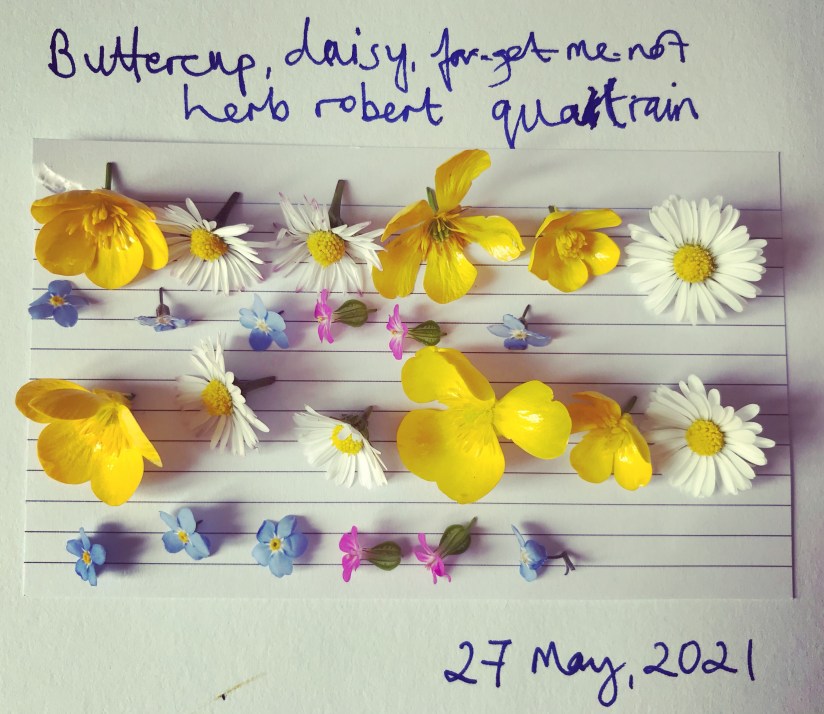 Buttercup, daisy, for-get-me-not
herb robert quatrain
27 May, 2021